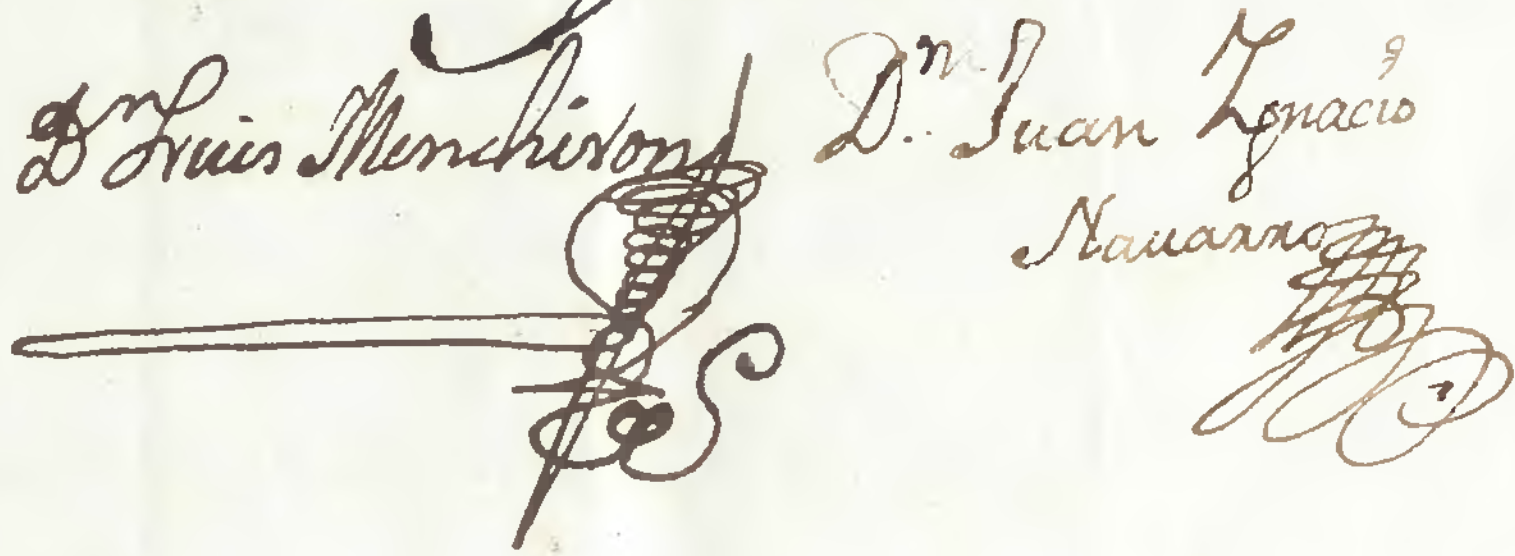 Dn Luis Menchiron
Dn. Juan Ignacio
Nauarro